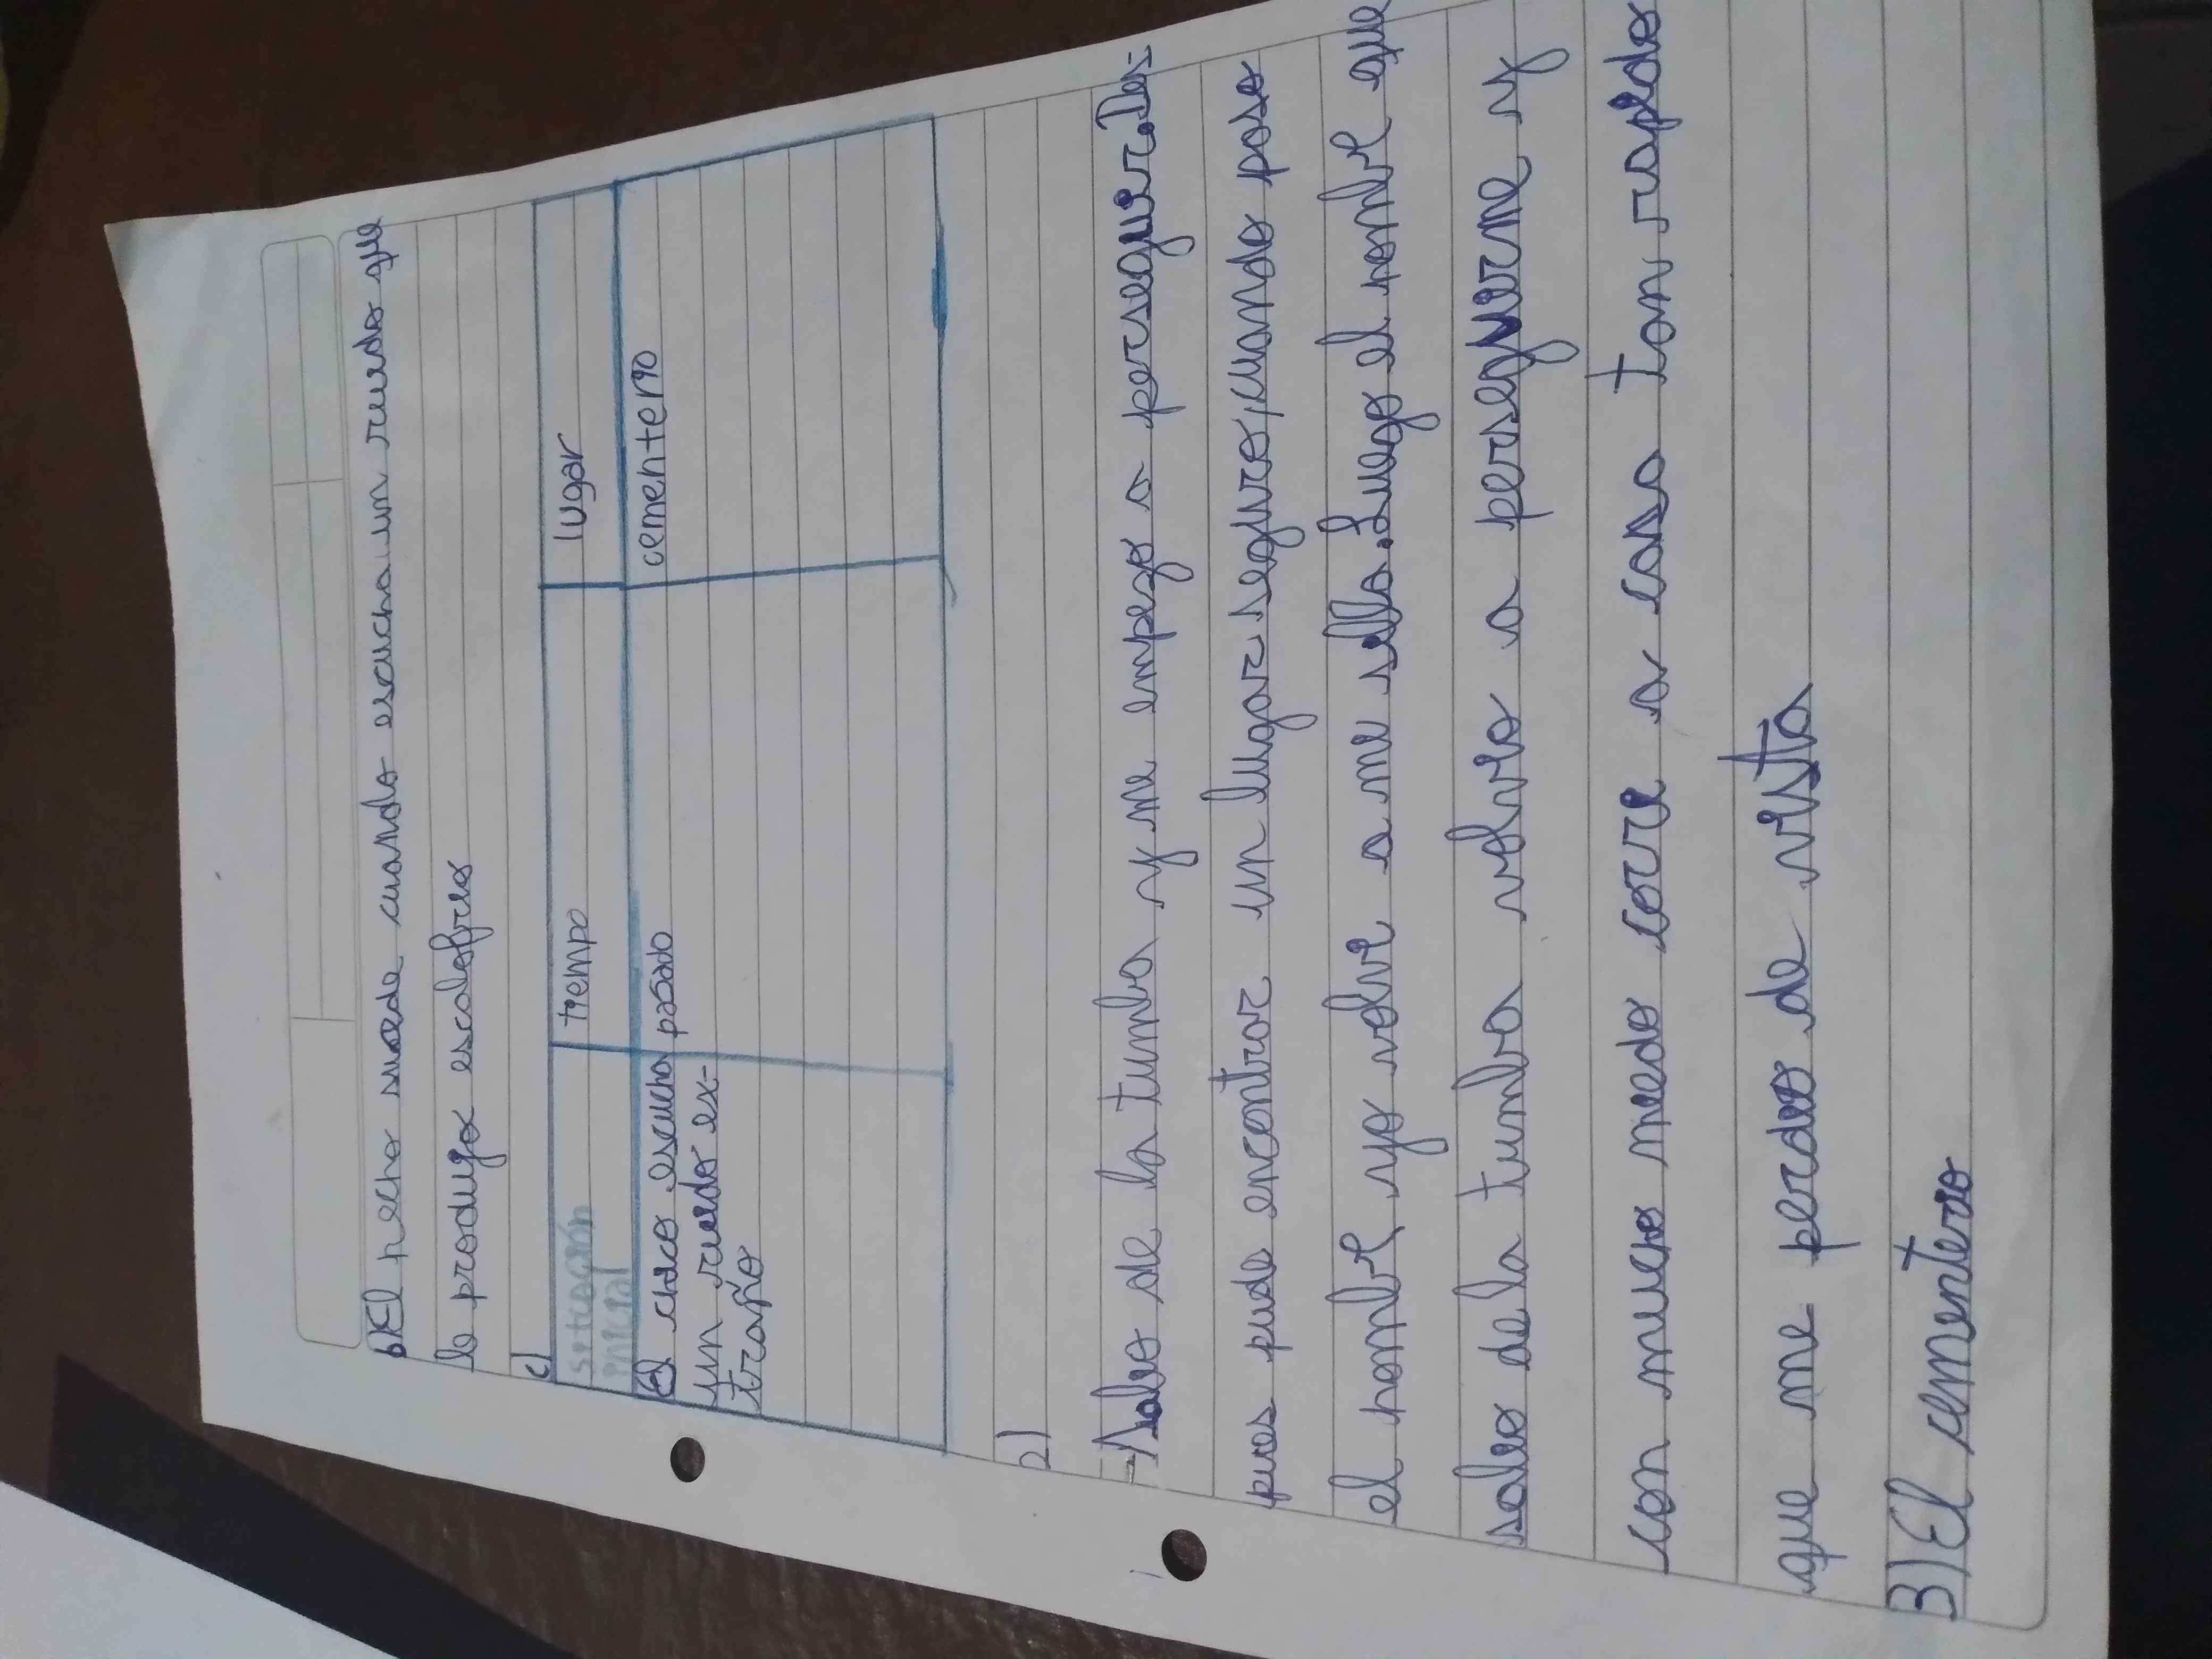 b) El hecho susede cuando escucha un ruido que
le produjo escalofrios
c)
situación inicial
tiempo
lugar
El chico escucho un ruido extraño
pasado
cementerio
2)
-Salio de la tumba y me empezo a perseguir. Des-
pues pude encontrar un lugar seguro, cuando paso
el hombre, yo volvi a me silla. Luego el hombre que
salio de la tumba volvio a perseguirme y
con mucho miedo corri a casa tan rapido
que me perdio de vista
3) El cementerio